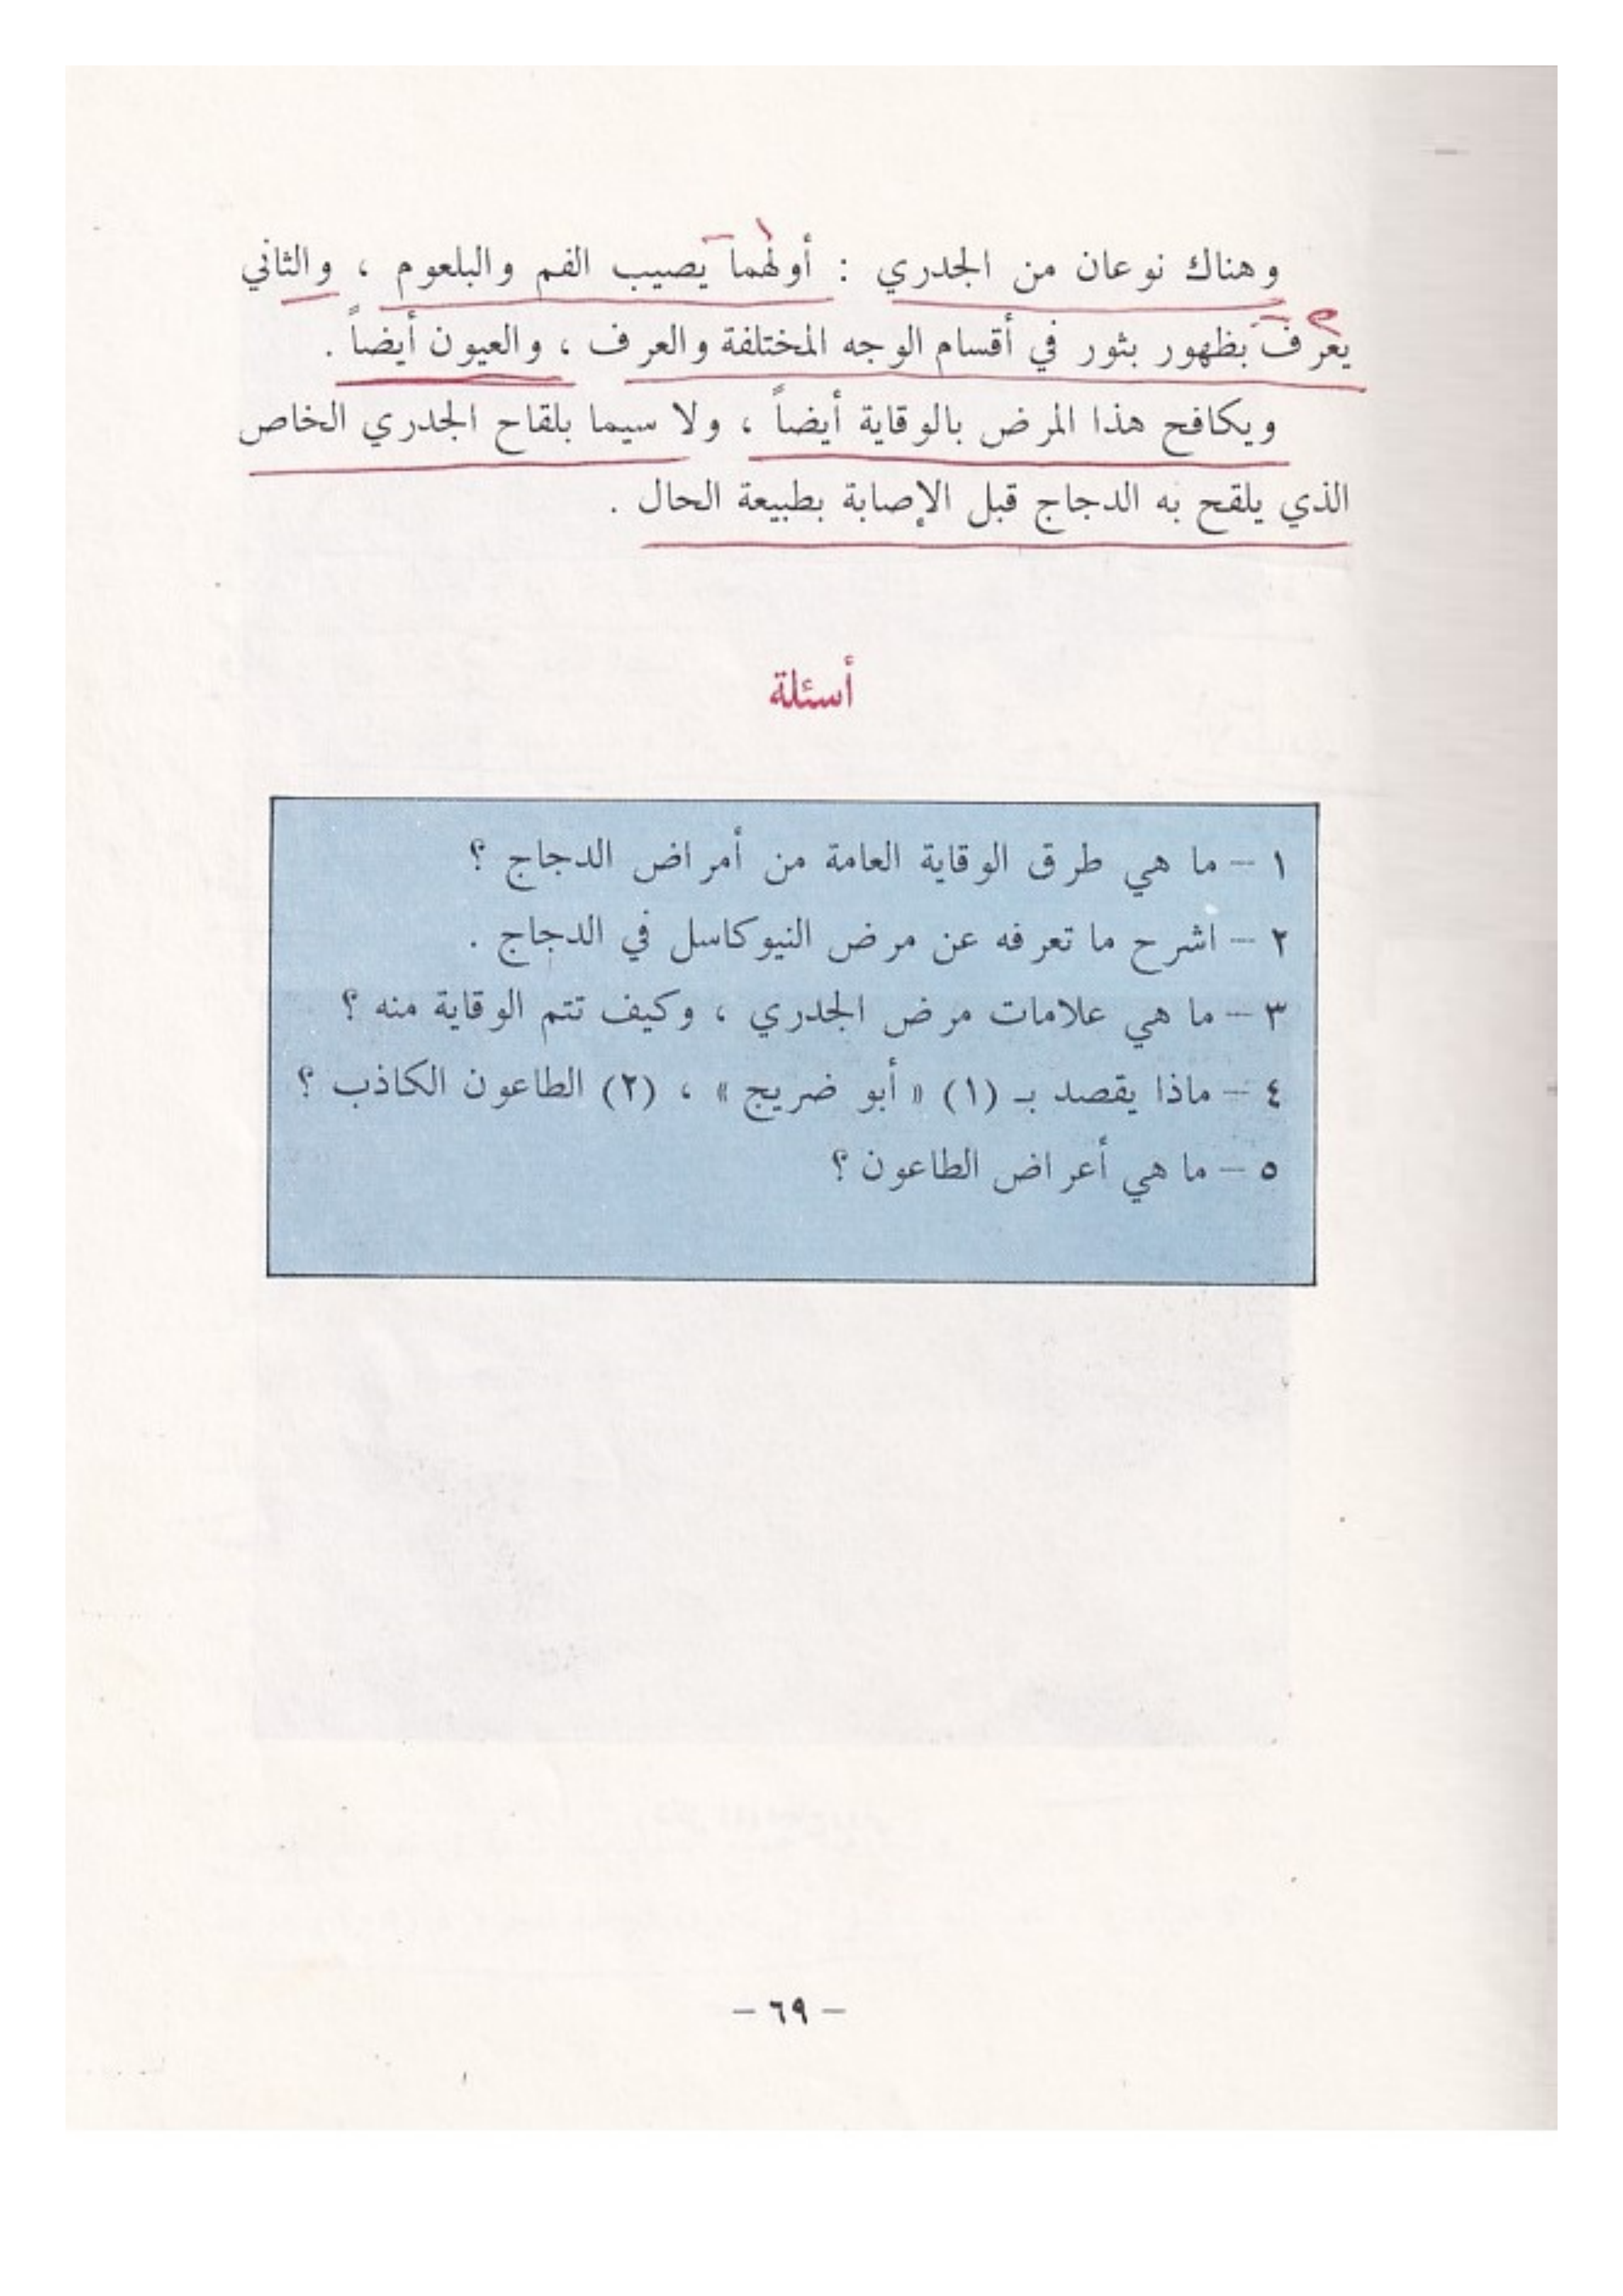 وهناك نوعان من الجدري : أولهما يصيب الفم والبلعوم ، والثاني
يعرف بظهور بثور في أقسام الوجه المختلفة والعرف ، والعيون أيضاً .
ويكافح هذا المرض بالوقاية أيضاً ، ولا سيما بلقاح الجدري الخاص
الذي يلقح به الدجاج قبل الإصابة بطبيعة الحال .
أسئلة
١ – ما هي طرق الوقاية العامة من أمراض الدجاج ؟
٢ – اشرح ما تعرفه عن مرض النيوكاسل في الدجاج .
٣ – ما هي علامات مرض الجدري ، وكيف تتم الوقاية منه ؟
٤ – ماذا يقصد بـ (١) « أبو ضريج » ، (٢) الطاعون الكاذب ؟
٥ – ما هي أعراض الطاعون ؟
– ٦٩ –